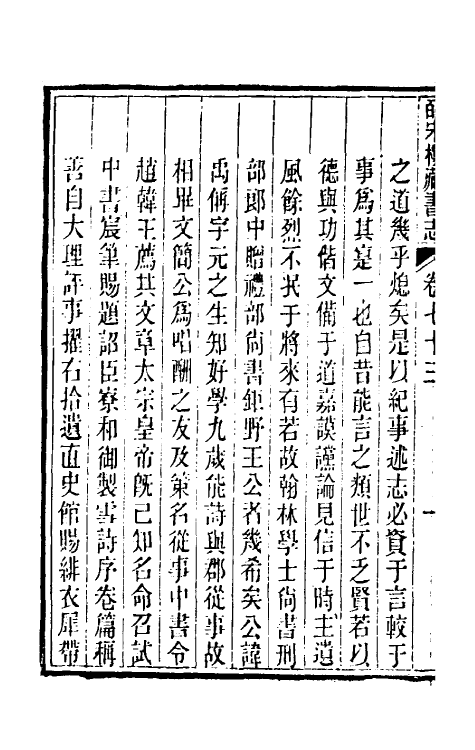 皕宋樓藏書志 卷七十三 一
之道幾乎熄矣是以紀事述志必資于言較于
事為其寔一也自昔能言之類世不乏賢若以
德與功偕文備于道嘉謨讜論見信于時主遺
風餘烈不泯于將來有若故翰林學士尚書刑
部郎中贈禮部尚書鉅野王公者幾希矣公諱
禹偁字元之生知好學九歲能詩與郡從事故
相畢文簡公為唱酬之友及策名從事中書令
趙韓王薦其文章太宗皇帝既已知名命召試
中書宸筆賜題詔臣寮和御製雪詩序卷篇稱
善自大理評事擢右拾遺直史館賜緋衣犀帶